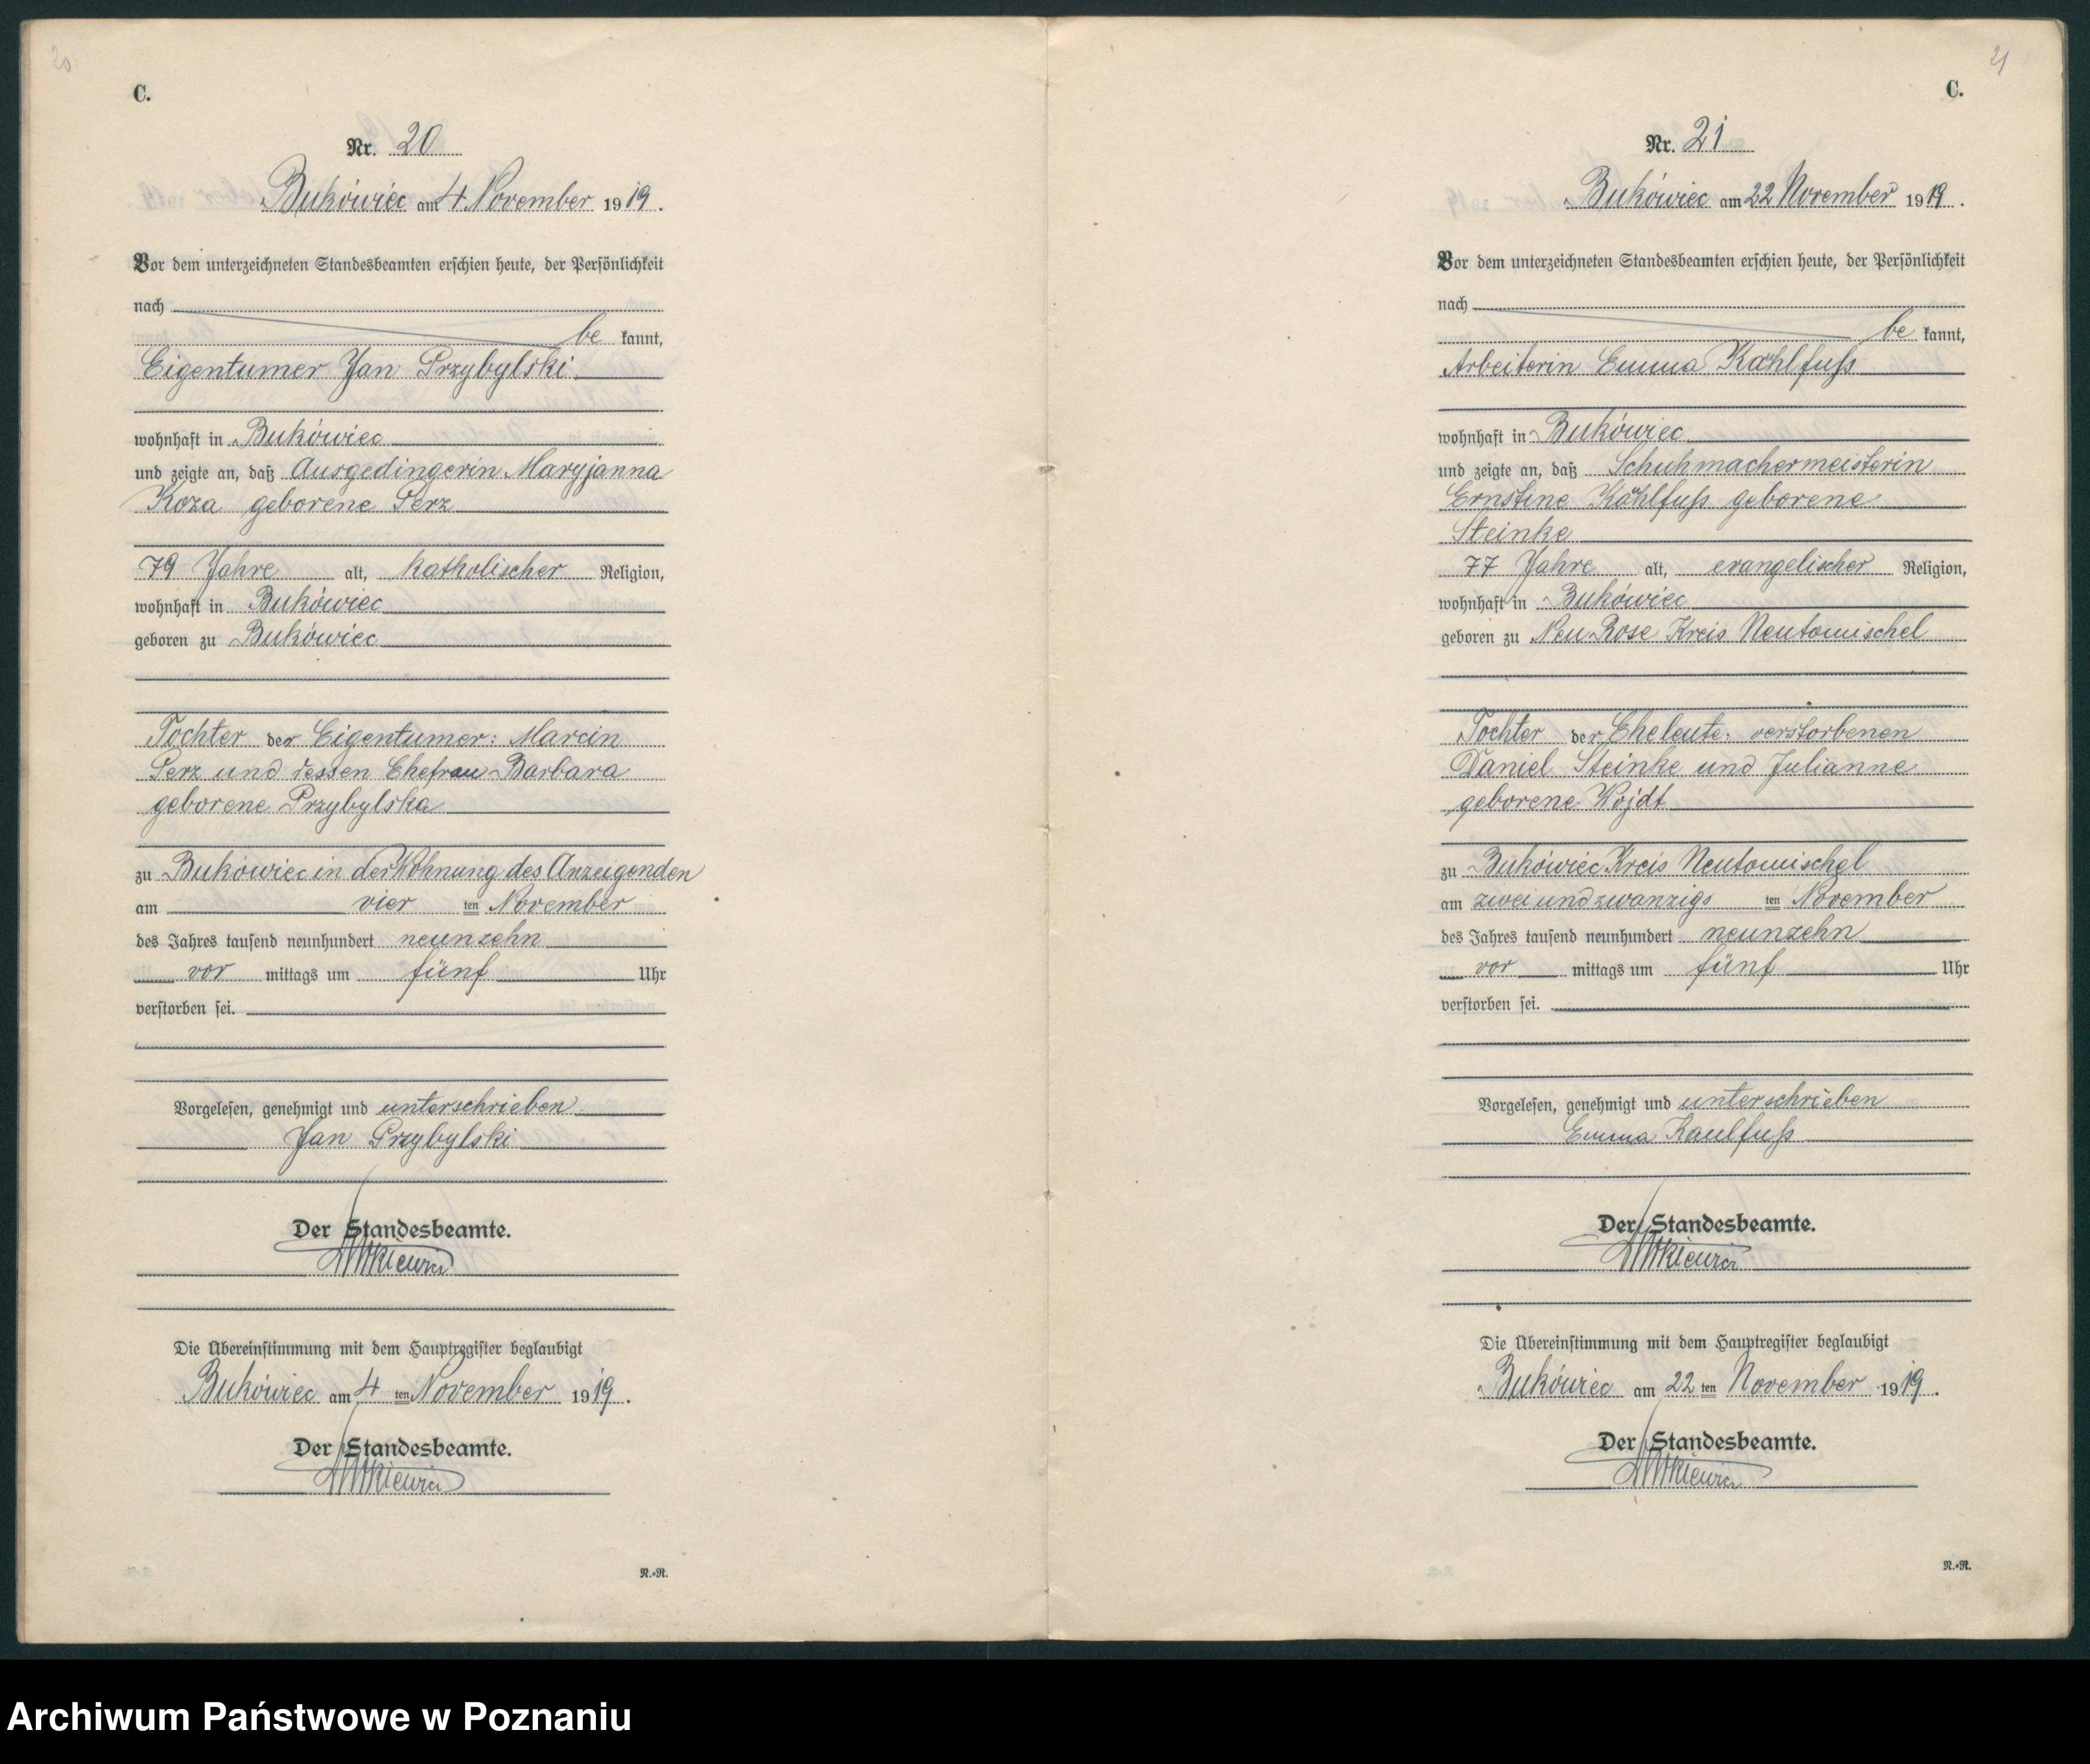 20
C.
Nr. 20
Bukówiec am 4. November 1919.
Vor dem unterzeichneten Standesbeamten erschien heute, der Persönlichkeit
nach
be kannt,
Eigentumer Jan Przybylski
wohnhaft in Bukówiec
und zeigte an, daß Ausgedingerin Maryjanna
Koza geborene Perz
79 Jahre alt, katholischer Religion,
wohnhaft in Bukówiec
geboren zu Bukówiec
Tochter der Eigentumer: Marcin
Perz und dessen Ehefrau Barbara
geborene Przybylska
zu Bukówiec in der Wohnung des Anzeigenden
am vier ten November
des Jahres tausend neunhundert neunzehn
vor mittags um fünf Uhr
verstorben sei.
Vorgelesen, genehmigt und unterschrieben
Jan Przybylski
Der Standesbeamte.
Die Übereinstimmung mit dem Hauptregister beglaubigt
Bukówiec am 4 ten November 1919.
Der Standesbeamte.
N.-N.
21
C.
Nr. 21
Bukówiec am 22 November 1919.
Vor dem unterzeichneten Standesbeamten erschien heute, der Persönlichkeit
nach
be kannt,
Arbeiterin Emma Kahlfuß
wohnhaft in Bukówiec
und zeigte an, daß Schuhmachermeisterin
Ernstine Kahlfuß geborene
Steinke
77 Jahre alt, evangelischer Religion,
wohnhaft in Bukówiec
geboren zu Neu Rose Kreis Neutomischel
Tochter der Eheleute: verstorbenen
Daniel Steinke und Julianne
geborene Wojdt
zu Bukówiec Kreis Neutomischel
am zwei und zwanzigs ten November
des Jahres tausend neunhundert neunzehn
vor mittags um fünf Uhr
verstorben sei.
Vorgelesen, genehmigt und unterschrieben
Emma Kaulfuß
Der Standesbeamte.
Die Übereinstimmung mit dem Hauptregister beglaubigt
Bukówiec am 22 ten November 1919.
Der Standesbeamte.
N.-N.
Archiwum Państwowe w Poznaniu